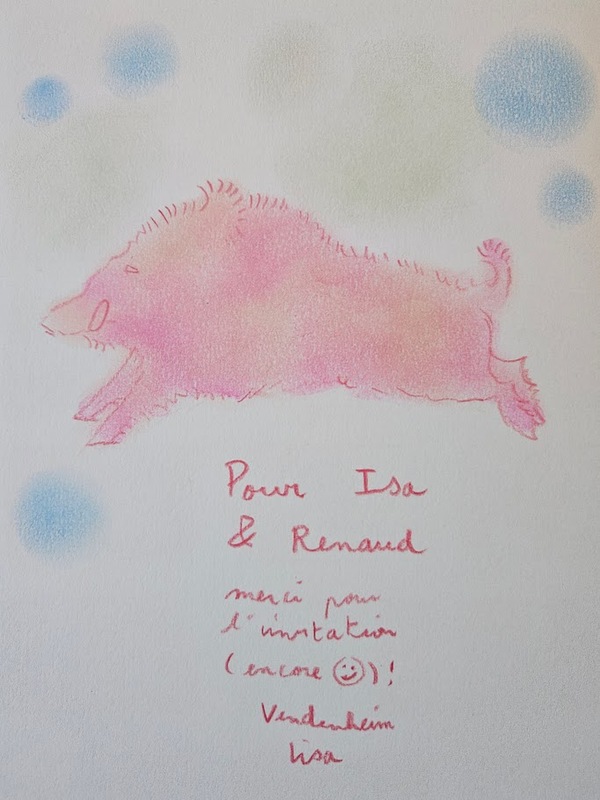 Pour Isa
& Renaud
merci pour
l'invitation
(encore ☺)!
Vendenheim
Lisa